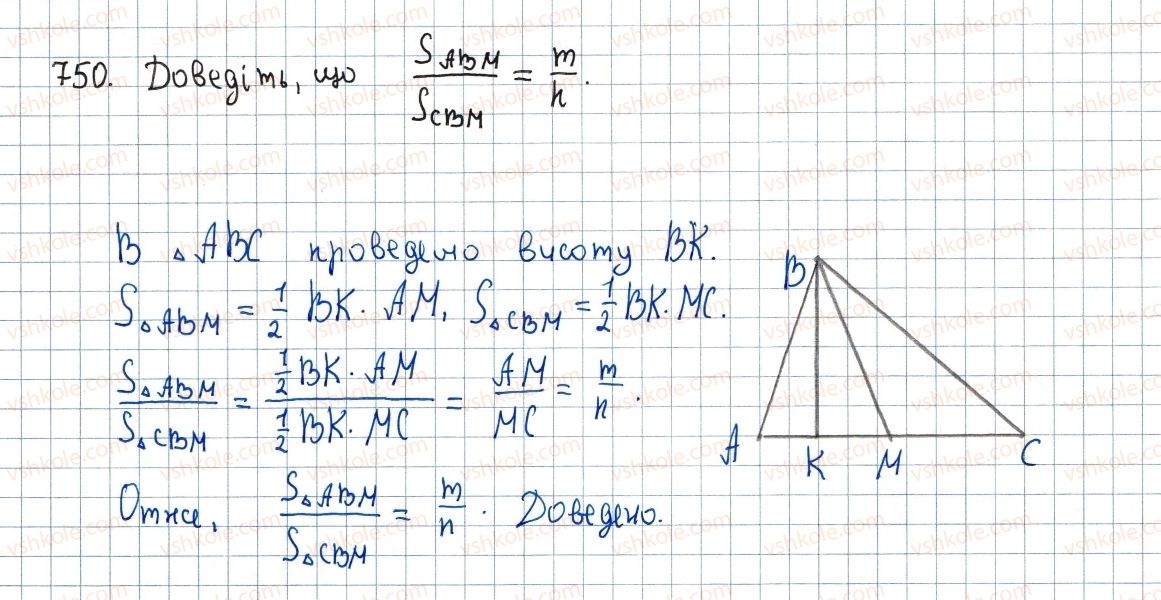 750. Доведіть, що S_ABM / S_CBM = m/n.
В △ABC проведемо висоту BK.
S_△ABM = 1/2 BK · AM, S_△CBM = 1/2 BK · MC.
S_△ABM / S_△CBM = (1/2 BK · AM) / (1/2 BK · MC) = AM / MC = m/n.
Отже, S_△ABM / S_△CBM = m/n. Доведено.
B
A K M C
vshkole.com